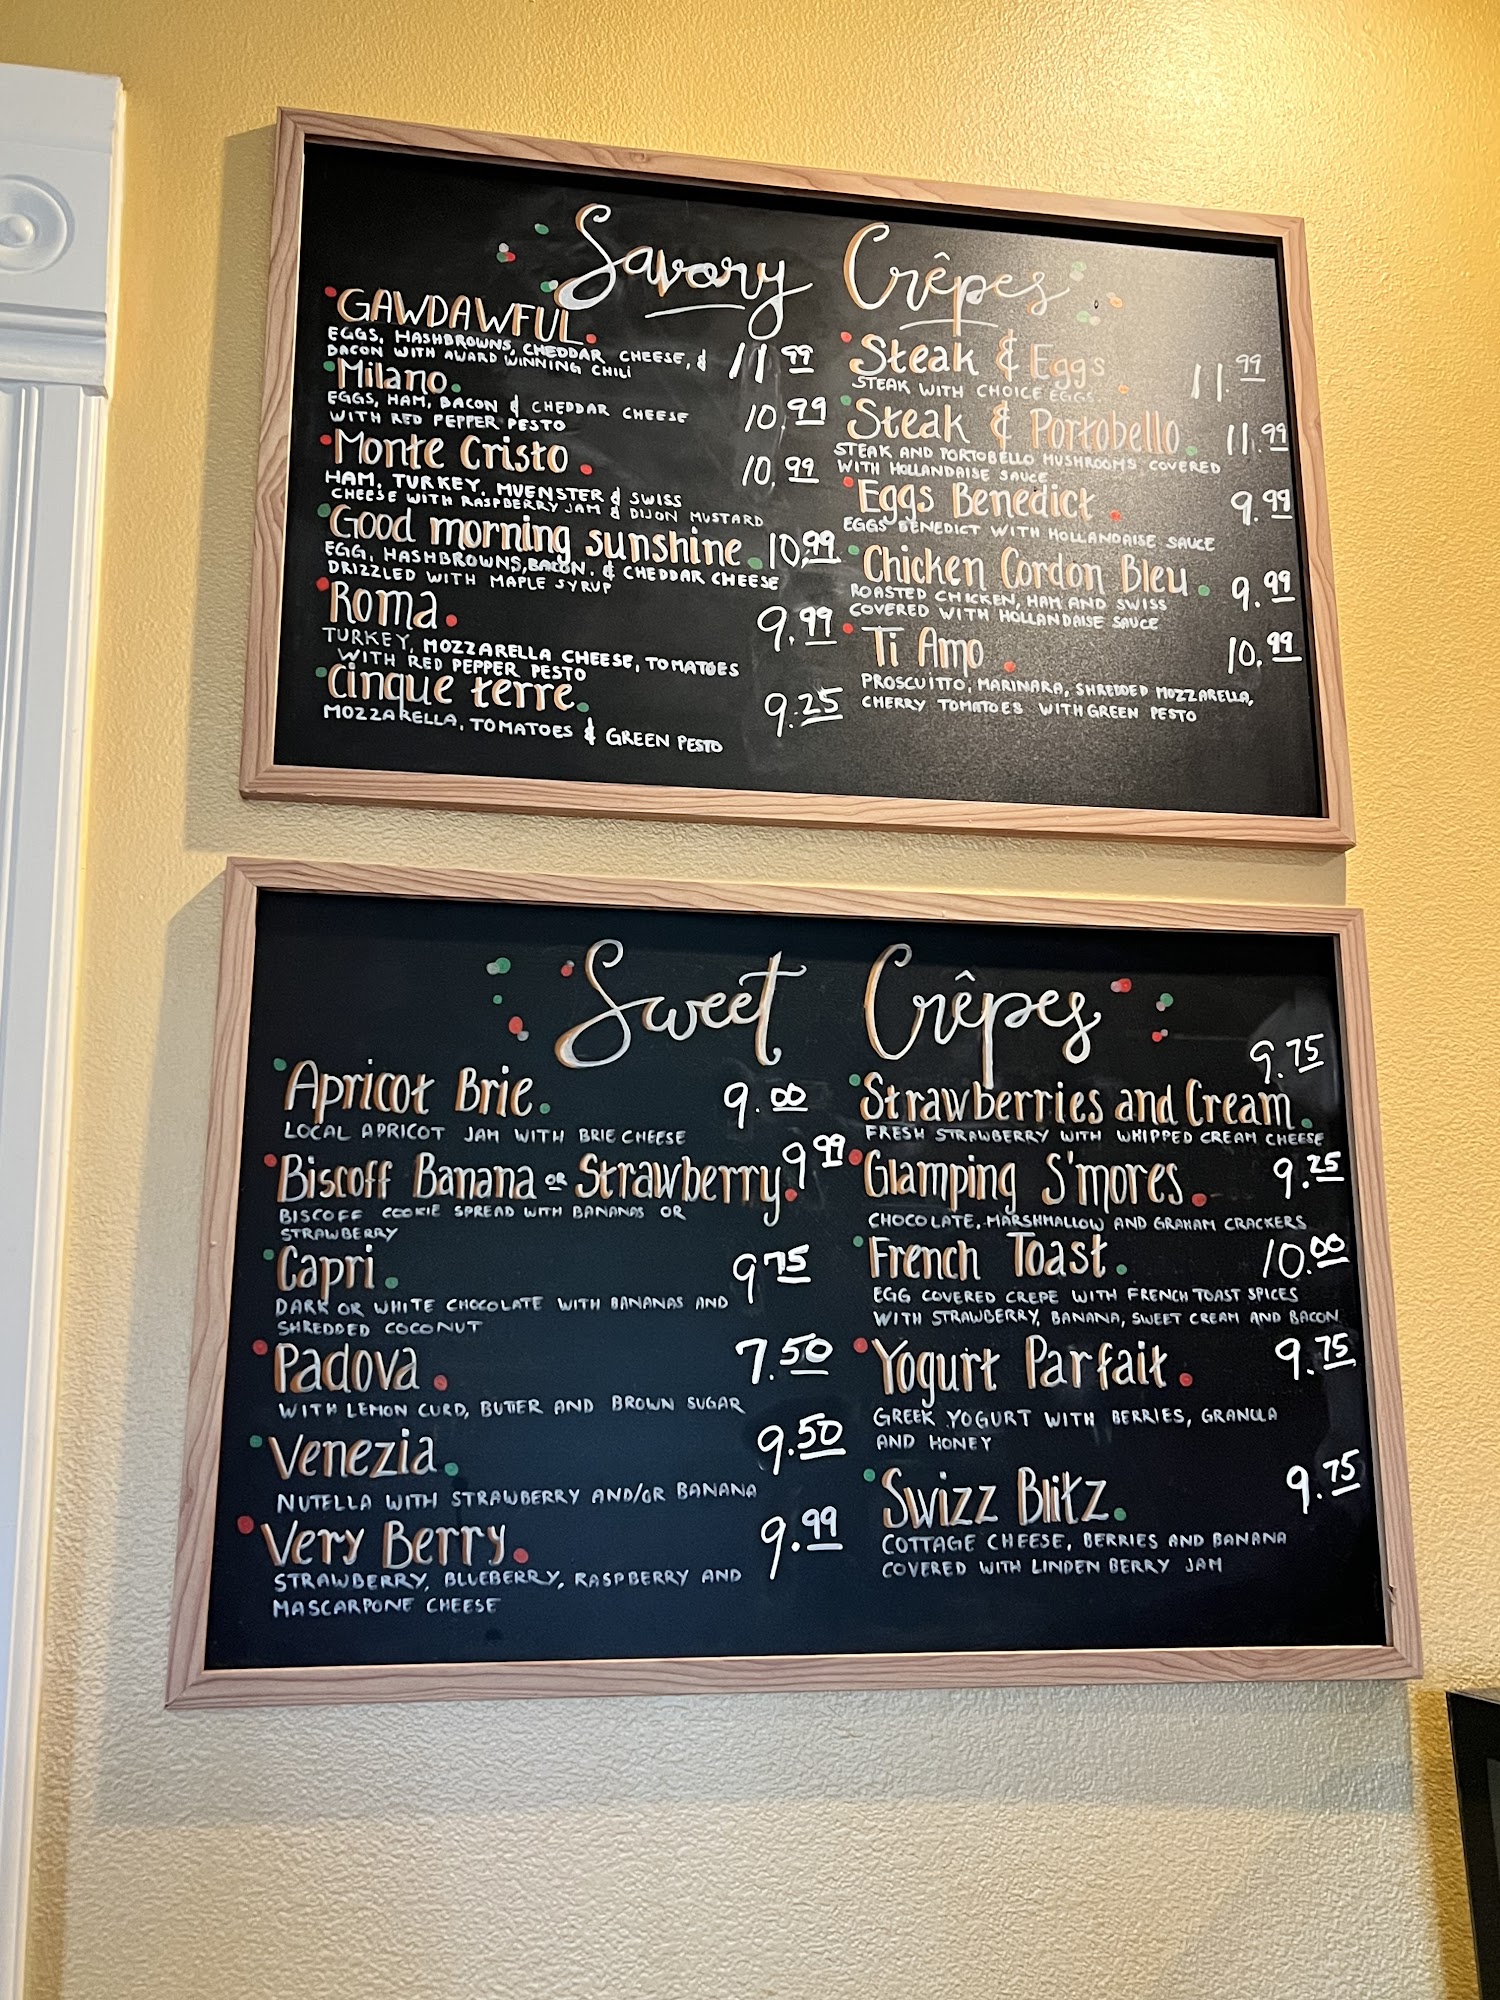 Savory Crêpes
GAWDAWFUL.
EGGS, HASHBROWNS, CHEDDAR CHEESE, &
BACON WITH AWARD WINNING CHILI
11.99
Milano.
EGGS, HAM, BACON & CHEDDAR CHEESE
WITH RED PEPPER PESTO
10.99
Monte Cristo.
10.99
HAM, TURKEY, MUENSTER & SWISS
CHEESE WITH RASPBERRY JAM & DIJON MUSTARD
Good morning sunshine. 10.99
EGG, HASHBROWNS, BACON, & CHEDDAR CHEESE
DRIZZLED WITH MAPLE SYRUP
Roma.
9.99
TURKEY, MOZZARELLA CHEESE, TOMATOES
WITH RED PEPPER PESTO
Cinque terre.
9.25
MOZZARELLA, TOMATOES & GREEN PESTO
Steak & Eggs.
11.99
STEAK WITH CHOICE EGGS.
Steak & Portobello. 11.99
STEAK AND PORTOBELLO MUSHROOMS COVERED
WITH HOLLANDAISE SAUCE
Eggs Benedict. 9.99
EGGS BENEDICT WITH HOLLANDAISE SAUCE
Chicken Cordon Bleu. 9.99
ROASTED CHICKEN, HAM AND SWISS
COVERED WITH HOLLANDAISE SAUCE
Ti Amo. 10.99
PROSCUITTO, MARINARA, SHREDDED MOZZARELLA,
CHERRY TOMATOES WITH GREEN PESTO
Sweet Crêpes
Apricot Brie. 9.00
LOCAL APRICOT JAM WITH BRIE CHEESE
Biscoff Banana OR Strawberry. 9.99
BISCOFF COOKIE SPREAD WITH BANANAS OR
STRAWBERRY
Capri. 9.75
DARK OR WHITE CHOCOLATE WITH BANANAS AND
SHREDDED COCONUT
Padova. 7.50
WITH LEMON CURD, BUTTER AND BROWN SUGAR
Venezia. 9.50
NUTELLA WITH STRAWBERRY AND/OR BANANA
Very Berry. 9.99
STRAWBERRY, BLUEBERRY, RASPBERRY AND
MASCARPONE CHEESE
9.75
Strawberries and Cream.
FRESH STRAWBERRY WITH WHIPPED CREAM CHEESE
Glamping S'mores. 9.25
CHOCOLATE, MARSHMALLOW AND GRAHAM CRACKERS
French Toast. 10.00
EGG COVERED CREPE WITH FRENCH TOAST SPICES
WITH STRAWBERRY, BANANA, SWEET CREAM AND BACON
Yogurt Parfait. 9.75
GREEK YOGURT WITH BERRIES, GRANOLA
AND HONEY
Swizz Blitz. 9.75
COTTAGE CHEESE, BERRIES AND BANANA
COVERED WITH LINDEN BERRY JAM